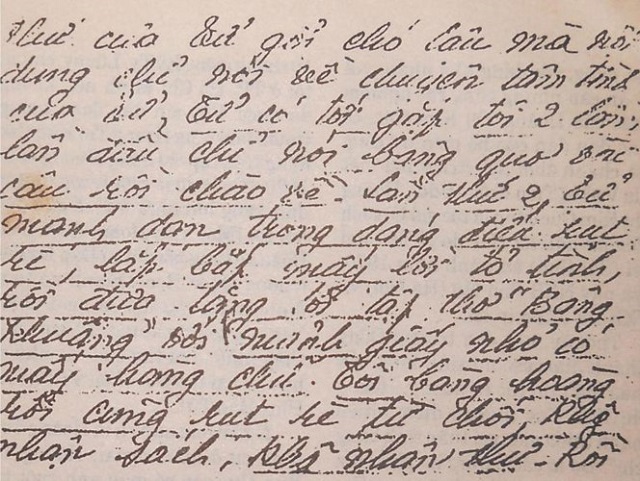 thư của Tử gởi cho Cầu mà nội
dung chỉ nói về chuyện tâm tình
của Tử, Tử có tới gặp tôi 2 lần,
lần đầu chỉ nói bâng quơ vài
câu rồi chào về. Lần thứ 2, Tử
mạnh dạn trong dáng điệu rụt
rè, lắp bắp mấy lời tỏ tình,
rồi đưa tặng tôi tập thơ "Bâng
khuâng" với mảnh giấy nhỏ có
mấy hàng chữ. Tôi bàng hoàng
rồi cũng rụt rè từ chối, khg
nhận sách, khg nhận thư. Rồi